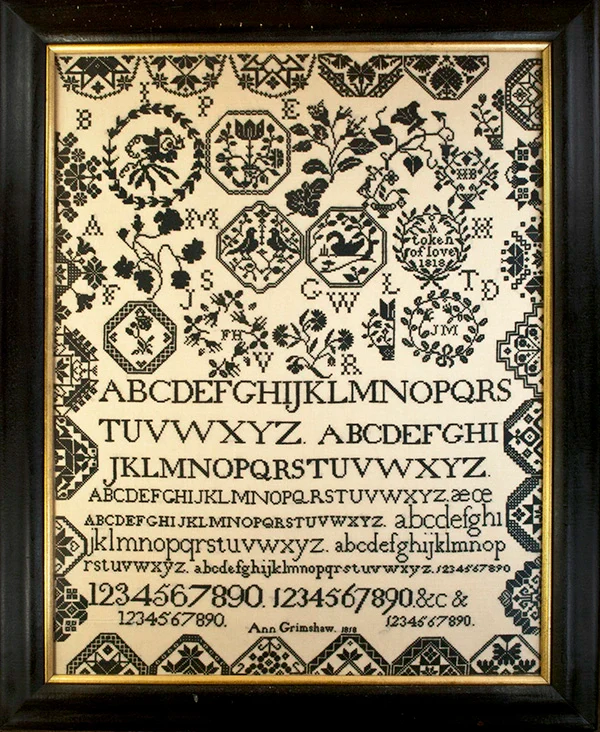 B I P E
HB
A M H
A
token
of love
1818
F J S C W L T D
FH JM
V R
ABCDEFGHIJKLMNOPQRS
TUVWXYZ. ABCDEFGHI
JKLMNOPQRSTUVWXYZ.
ABCDEFGHIJKLMNOPQRSTUVWXYZ. æ œ
ABCDEFGHIJKLMNOPQRSTUVWXYZ. abcdefghi
jklmnopqrstuvwxyz. abcdefghijklmnop
rstuvwxyz. abcdefghijklmnopqrstuvwxyz. 1234567890
1234567890. 1234567890. &c &
1234567890. Ann Grimshaw. 1818 1234567890.